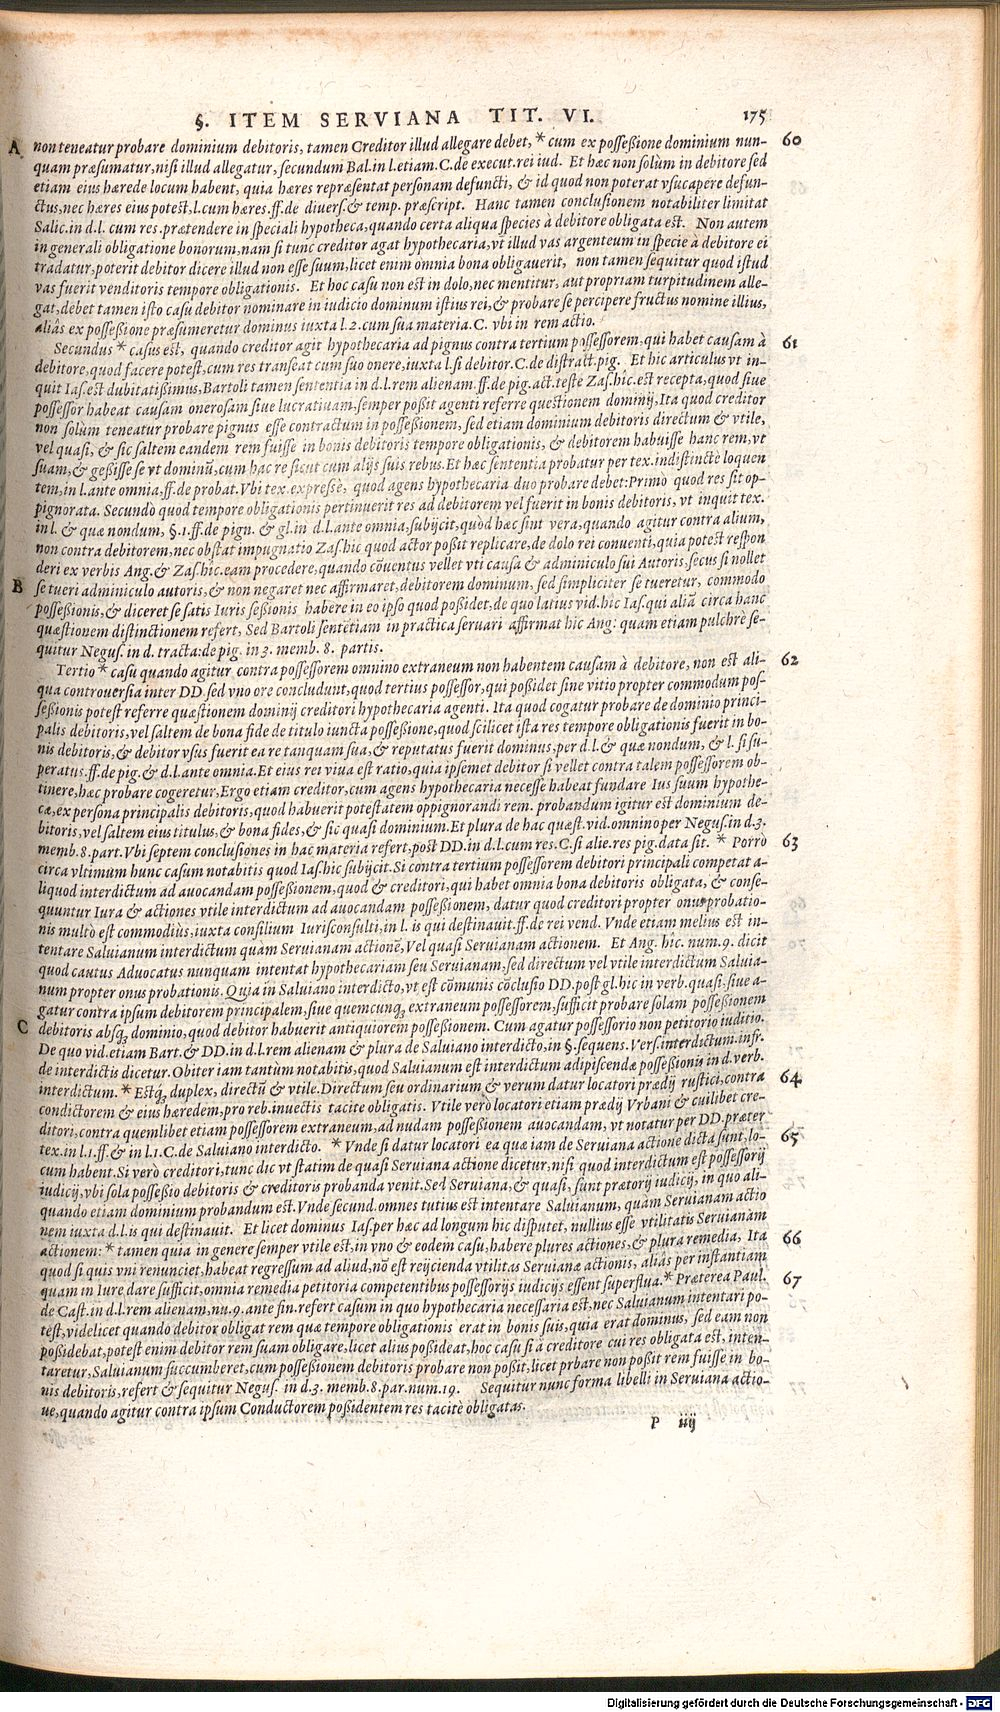 §. ITEM SERVIANA TIT. VI. 175
A non teneatur probare dominium debitoris, tamen Creditor illud allegare debet, * cum ex possessione dominium nun- 60
quam præsumatur, nisi illud allegatur, secundum Bal. in l. etiam. C. de execut. rei iud. Et hæc non solùm in debitore sed
etiam eius hærede locum habent, quia hæres repræsentat personam defuncti, & id quod non poterat vsucapere defun-
ctus, nec hæres eius potest, l. cum hæres. ff. de diuers. & temp. præscript. Hanc tamen conclusionem notabiliter limitat
Salic. in d. l. cum res. prætendere in speciali hypotheca, quando certa aliqua species à debitore obligata est. Non autem
in generali obligatione bonorum, nam si tunc creditor agat hypothecaria, vt illud vas argenteum in specie à debitore ei
tradatur, poterit debitor dicere illud non esse suum, licet enim omnia bona obligauerit, non tamen sequitur quod istud
vas fuerit venditoris tempore obligationis. Et hoc casu non est in dolo, nec mentitur, aut propriam turpitudinem alle-
gat, debet tamen isto casu debitor nominare in iudicio dominum istius rei, & probare se percipere fructus nomine illius,
aliâs ex possessione præsumeretur dominus iuxta l. 2. cum sua materia. C. vbi in rem actio.
Secundus * casus est, quando creditor agit hypothecaria ad pignus contra tertium possessorem, qui habet causam à 61
debitore, quod facere potest, cum res transeat cum suo onere, iuxta l. si debitor. C. de distract. pig. Et hic articulus vt in-
quit Ias. est dubitatissimus, Bartoli tamen sententia in d. l. rem alienam. ff. de pig. act. teste Zas. hîc. est recepta, quod siue
possessor habeat causam onerosam siue lucratiuam, semper possit agenti referre questionem dominij, Ita quod creditor
non solùm teneatur probare pignus esse contractum in possessionem, sed etiam dominium debitoris directum & vtile,
vel quasi, & sic saltem eandem rem fuisse in bonis debitoris tempore obligationis, & debitorem habuisse hanc rem, vt
suam, & gessisse se vt dominũ, cum hac re sicut cum alijs suis rebus. Et hæc sententia probatur per tex. indistinctè loquen
tem, in l. ante omnia, ff. de probat. Vbi tex. expressè, quod agens hypothecaria duo probare debet: Primò quod res sit op-
pignorata. Secundò quod tempore obligationis pertinuerit res ad debitorem vel fuerit in bonis debitoris, vt inquit tex.
in l. & quæ nondum, §. 1. ff. de pign. & gl. in d. l. ante omnia, subijcit, quòd hæc sint vera, quando agitur contra alium,
non contra debitorem, nec obstat impugnatio Zas. hic quod actor possit replicare, de dolo rei conuenti, quia potest respon
deri ex verbis Ang. & Zas. hic. eam procedere, quando cõuentus vellet vti causa & adminiculo sui Autoris, secus si nollet
B se tueri adminiculo autoris, & non negaret nec affirmaret, debitorem dominum, sed simpliciter se tueretur, commodo
possessionis, & diceret se satis Iuris sessionis habere in eo ipso quod possidet, de quo latius vid. hic Ias. qui aliã circa hanc
quæstionem distinctionem refert, Sed Bartoli sentẽtiam in practica seruari affirmat hic Ang: quam etiam pulchrè se-
quitur Negus. in d. tracta: de pig. in 3. memb. 8. partis.
Tertio * casu quando agitur contra possessorem omnino extraneum non habentem causam à debitore, non est ali- 62
qua controuersia inter DD. sed vno ore concludunt, quod tertius possessor, qui possidet sine vitio propter commodum pos-
sessionis potest referre quæstionem dominij creditori hypothecaria agenti. Ita quod cogatur probare de dominio princi-
palis debitoris, vel saltem de bona fide de titulo iuncta possessione, quod scilicet ista res tempore obligationis fuerit in bo-
nis debitoris, & debitor vsus fuerit ea re tanquam sua, & reputatus fuerit dominus, per d. l. & quæ nondum, & l. si su-
peratus. ff. de pig. & d. l. ante omnia. Et eius rei viua est ratio, quia ipsemet debitor si vellet contra talem possessorem ob-
tinere, hæc probare cogeretur. Ergo etiam creditor, cum agens hypothecaria necesse habeat fundare Ius suum hypothe-
cæ, ex persona principalis debitoris, quod habuerit potestatem oppignorandi rem. probandum igitur est dominium de-
bitoris, vel saltem eius titulus, & bona fides, & sic quasi dominium. Et plura de hac quæst. vid. omnino per Negus. in d. 3.
memb. 8. part. Vbi septem conclusiones in hac materia refert, post DD. in d. l. cum res. C. si alie. res pig. data sit. * Porrò 63
circa vltimum hunc casum notabitis quod Ias. hic subijcit. Si contra tertium possessorem debitori principali competat a-
liquod interdictum ad auocandam possessionem, quod & creditori, qui habet omnia bona debitoris obligata, & conse-
quuntur Iura & actiones vtile interdictum ad auocandam possessionem, datur quod creditori propter onus probatio-
nis multò est commodiùs, iuxta consilium Iurisconsulti, in l. is qui destinauit. ff. de rei vend. Vnde etiam melius est in-
tentare Saluianum interdictum quàm Seruianam actionẽ, Vel quasi Seruianam actionem. Et Ang. hîc. num. 9. dicit
quod cautus Aduocatus nunquam intentat hypothecariam seu Seruianam, sed directum vel vtile interdictum Saluia-
num propter onus probationis. Quia in Saluiano interdicto, vt est cõmunis cõclusio DD. post gl. hic in verb. quasi. siue a-
gatur contra ipsum debitorem principalem, siue quemcunq; extraneum possessorem, sufficit probare solam possessionem
C debitoris absq; dominio, quod debitor habuerit antiquiorem possessionem. Cum agatur possessorio non petitorio iuditio.
De quo vid. etiam Bart. & DD. in d. l. rem alienam & plura de Saluiano interdicto, in §. sequens. Vers. interdictum. infr.
de interdictis dicetur. Obiter iam tantùm notabitis, quod Saluianum est interdictum adipiscendæ possessionis in d. verb.
interdictum. * Estq; duplex, directũ & vtile. Directum seu ordinarium & verum datur locatori prædij rustici, contra 64
condictorem & eius hæredem, pro reb. inuectis tacite obligatis. Vtile verò locatori etiam prædij Vrbani & cuilibet cre-
ditori, contra quemlibet etiam possessorem extraneum, ad nudam possessionem auocandam, vt notatur per DD. præter
tex. in l. 1. ff. & in l. 1. C. de Saluiano interdicto. * Vnde si datur locatori ea quæ iam de Seruiana actione dicta sunt, lo- 65
cum habent. Si verò creditori, tunc dic vt statim de quasi Seruiana actione dicetur, nisi quod interdictum est possessorij
iudicij, vbi sola possessio debitoris & creditoris probanda venit. Sed Seruiana, & quasi, sunt prætorij iudicij, in quo ali-
quando etiam dominium probandum est. Vnde secund. omnes tutius est intentare Saluianum, quàm Seruianam actio
nem iuxta d. l. is qui destinauit. Et licet dominus Ias. per hæc ad longum hic disputet, nullius esse vtilitatis Seruianam
actionem: * tamen quia in genere semper vtile est, in vno & eodem casu, habere plures actiones, & plura remedia, Ita 66
quod si quis vni renunciet, habeat regressum ad aliud, nõ est reijcienda vtilitas Seruianæ actionis, aliâs per instantiam
quam in Iure dare sufficit, omnia remedia petitoria competentibus possessorijs iudicijs essent superflua. * Præterea Paul. 67
de Cast. in d. l. rem alienam, nu. 9. ante fin. refert casum in quo hypothecaria necessaria est, nec Saluianum intentari po-
test, videlicet quando debitor obligat rem quæ tempore obligationis erat in bonis suis, quia erat dominus, sed eam non
possidebat, potest enim debitor rem suam obligare, licet alius possideat, hoc casu si à creditore cui res obligata est, inten-
taretur, Saluianum succumberet, cum possessionem debitoris probare non possit, licet prbare non possit rem fuisse in bo-
nis debitoris, refert & sequitur Negus. in d. 3. memb. 8. par. num. 19. Sequitur nunc forma libelli in Seruiana actio-
ne, quando agitur contra ipsum Conductorem possidentem res tacitè obligatas.
P iiij
Digitalisierung gefördert durch die Deutsche Forschungsgemeinschaft - DFG